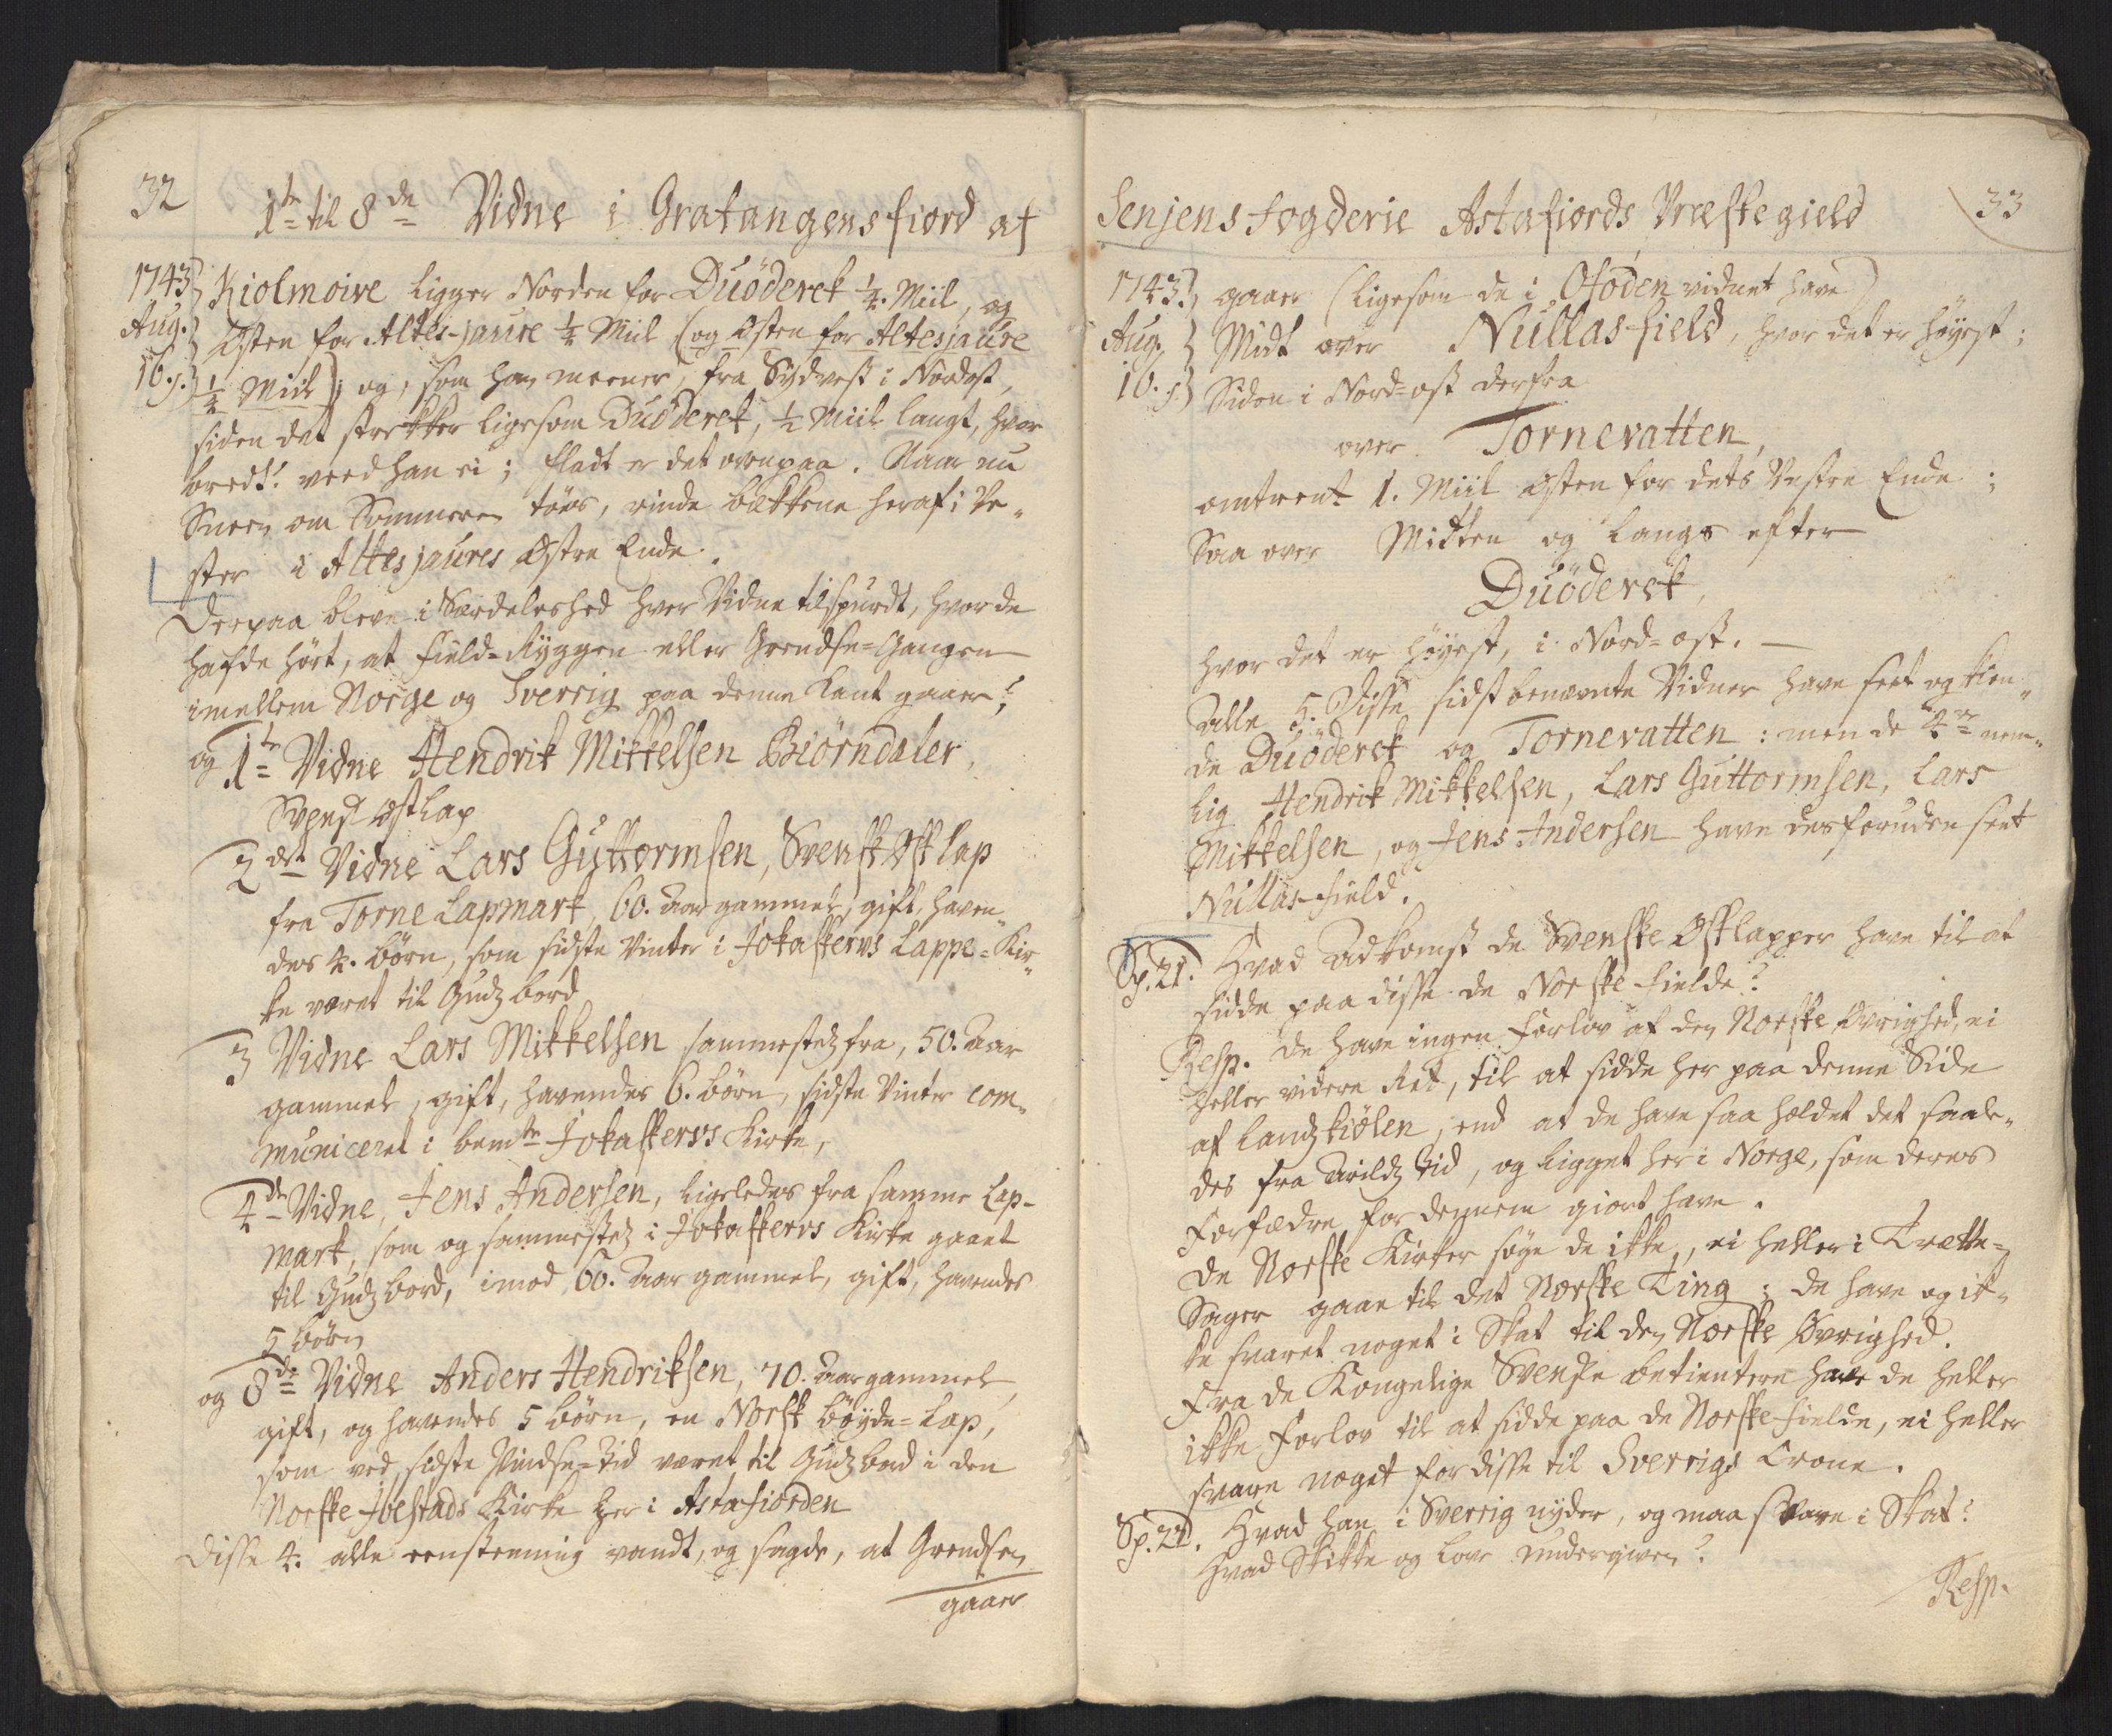 32
1te til 8de Vidne i Gratangens fiord af
1743
Aug.
16.
Kiolmoive ligger Norden for Duöderet ¼. Miil, og
Østen for Altes-jaure ½ Miil (og Østen for Altesjaure
½ Miil); og, som han meener, fra Sydvest i Nordost,
siden det strekker ligesom Duöderet, ½ Miil langt, hvor
bredt? veed han ei; fladt er det ovenpaa. Naar nu
Sneen om Sommeren töes, rinde bekkene heraf i Ve-
ster i Altesjaures Østre Ende.
Derpaa bleve i Særdeleshed hver Vidne tilspurdt, hvor de
hafde hört, at Field-Ryggen eller Grendse-Gangen
imellem Norge og Sverrig paa denne Kant gaaer?
og 1te Vidne Hendrik Mikkelsen Biörndaler,
Svensk Østlap
2det Vidne Lars Guttormsen, Svensk Østlap
fra Torne Lapmark, 60. Aar gammel, gift, haven-
des 4. börn, som sidste Vinter i Jokaskervs Lappe-Kir-
ke været til Gudz bord
3 Vidne Lars Mikkelsen sammestedz fra, 50. Aar
gammel, gift, havendes 6. börn, sidste Vinter com-
municeret i bemte Jokaskervs Kirke,
4de Vidne, Jens Andersen, ligeledes fra samme Lap-
mark, som og sammestedz i Jokaskervs Kirke gaaet
til Gudz bord, imod 60. Aar gammel, gift, havendes
5 börn
og 8de Vidne Anders Hendriksen, 70. Aar gammel,
gift, og havendes 5 börn, en Norsk böyde-Lap,
som ved sidste Pindse-Tid været til Gudz bord i den
Norske Ibestads Kirke her i Astafiorden
Disse 4. alle eenstemmig vandt, og sagde, at Grendsen
gaaer
Senjens Fogderie Astafiords Præstegield
33
1743.
Aug.
16.
gaaer (ligesom de i Ofoden vidnet have)
Midt over Nullas-field, hvor det er höyest;
Siden i Nord-ost derfra
over Tornevatten,
omtrent 1. Miil Østen for dets Vestre Ende;
Saa over Midten og langs efter
Duöderet,
hvor det er höyest, i Nord-ost.
Alle 5. Disse sidst benævnte Vidner have seet og kien-
de Duöderet og Tornevatten: men de 4re nem-
lig Hendrik Mikkelsen, Lars Guttormsen, Lars
Mikkelsen, og Jens Andersen have desforuden seet
Nullas-field.
Sp. 21. Hvad Adkomst de Svenske Østlapper have til at
sidde paa disse de Norske Fielde?
Resp. De have ingen Forlov af den Norske Øvrighed, ei
heller videre Ret, til at sidde her paa denne Side
af Landzkiölen, end at de have saa holdet det saale-
des fra Arildz Tid, og ligget her i Norge, som deres
Forfædre for dennem giort have.
De Norske Kirker söge de ikke, ei heller i Trætte-
Sager gaae til det Norske Ting; de have og ik-
ke svaret noget i Skat til den Norske Øvrighed.
Fra de Kongelige Svenske betientere have de heller
ikke Forlov til at sidde paa de Norske Fielde, ei heller
svare noget for disse til Sverrigs Crone.
Sp. 22. Hvad han i Sverrig nyder, og maa svare i Skat?
Hvad Skikke og Love undergiven?
Resp.